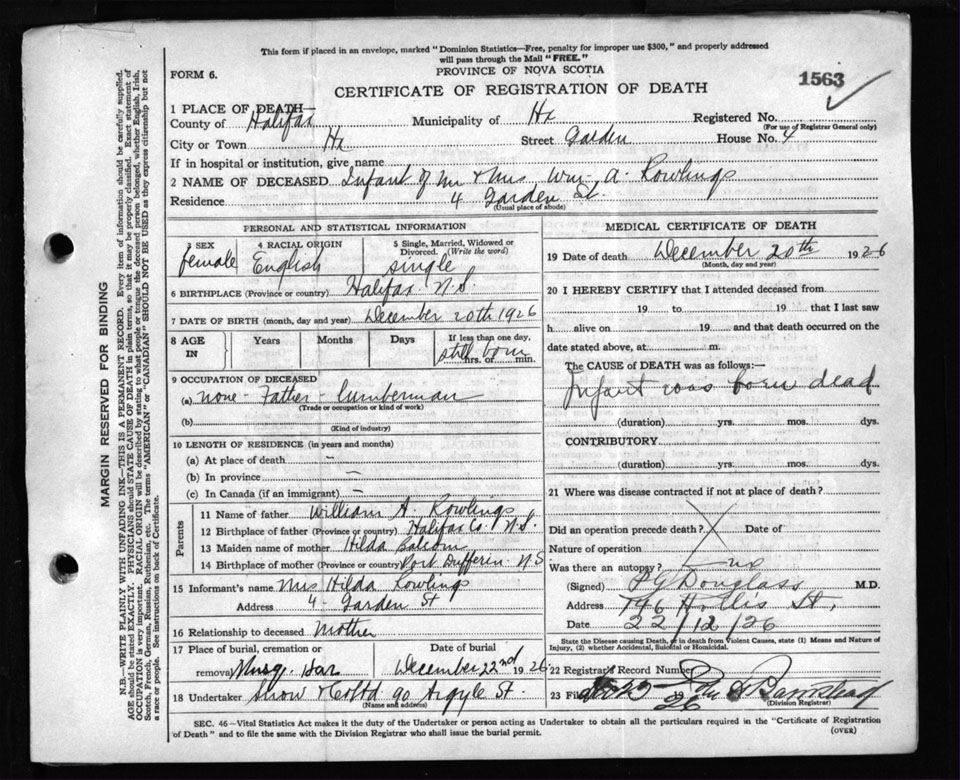 This form if placed in an envelope, marked "Dominion Statistics—Free, penalty for improper use $300," and properly addressed
will pass through the Mail "FREE."
PROVINCE OF NOVA SCOTIA
FORM 6.
1563
CERTIFICATE OF REGISTRATION OF DEATH
1 PLACE OF DEATH—
County of Halifax Municipality of Hx Registered No.
(For use of Registrar General only)
City or Town Hx Street Garden House No. 4
If in hospital or institution, give name
2 NAME OF DECEASED Infant of Mr & Mrs Wm. A. Rowlings
Residence 4 Garden St.
(Usual place of abode)
PERSONAL AND STATISTICAL INFORMATION
3 SEX 4 RACIAL ORIGIN 5 Single, Married, Widowed or
Divorced. (Write the word)
female English single
6 BIRTHPLACE (Province or country) Halifax N.S.
7 DATE OF BIRTH (month, day and year) December 20th 1926
8 AGE IN Years Months Days If less than one day,
still born hrs. or min.
9 OCCUPATION OF DECEASED
(a) none - Father - lumberman
(Trade or occupation or kind of work)
(b)
(Kind of industry)
10 LENGTH OF RESIDENCE (in years and months)
(a) At place of death –
(b) In province –
(c) In Canada (if an immigrant) –
Parents
11 Name of father William A. Rowlings
12 Birthplace of father (Province or country) Halifax Co. N.S.
13 Maiden name of mother Hilda Balcom
14 Birthplace of mother (Province or country) Port Dufferin N.S
15 Informant's name Mrs Hilda Rowlings
Address 4 - Garden St
16 Relationship to deceased Mother
17 Place of burial, cremation or Date of burial
removal Musq. Har December 22nd 1926
18 Undertaker Snow & Co Ltd 90 Argyle St.
(Name and address)
MEDICAL CERTIFICATE OF DEATH
19 Date of death December 20th 1926
(Month, day and year)
20 I HEREBY CERTIFY that I attended deceased from
19 to 19 that I last saw
h alive on 19 and that death occurred on the
date stated above, at m.
The CAUSE OF DEATH was as follows:—
Infant was born dead
(duration) yrs. mos. dys.
CONTRIBUTORY
(duration) yrs. mos. dys.
21 Where was disease contracted if not at place of death?
Did an operation precede death? Date of
Nature of operation
Was there an autopsy? no
(Signed) Douglass M.D.
Address 146 Hollis St,
Date 22/12/26
State the Disease causing Death, or in death from Violent Causes, state (1) Means and Nature of
Injury, (2) whether Accidental, Suicidal or Homicidal.
22 Registrar's Record Number
23 Filed 26
(Division Registrar)
SEC. 46—Vital Statistics Act makes it the duty of the Undertaker or person acting as Undertaker to obtain all the particulars required in the "Certificate of Registration
of Death" and to file the same with the Division Registrar who shall issue the burial permit.
(OVER)
MARGIN RESERVED FOR BINDING
N.B.—WRITE PLAINLY WITH UNFADING INK—THIS IS A PERMANENT RECORD. Every item of information should be carefully supplied.
AGE should be stated EXACTLY. PHYSICIANS should STATE CAUSE OF DEATH in plain terms, so that it may be properly classified. Exact statement of
OCCUPATION is very important. RACIAL ORIGIN will be described by stating to what people or tongue the deceased person belonged, whether English, Irish,
Scotch, French, German, Russian, Ruthenian, etc. The terms "AMERICAN" or "CANADIAN" SHOULD NOT BE USED as they express citizenship but not
a race or people. See instructions on back of Certificate.